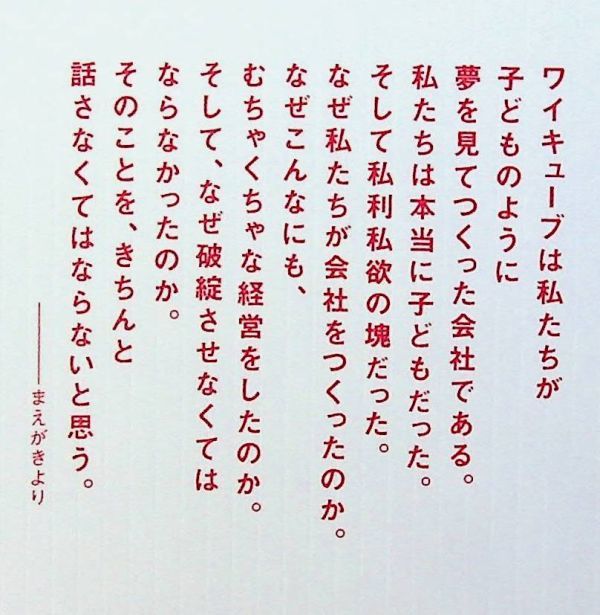 ワイキューブは私たちが
子どものように
夢を見てつくった会社である。
私たちは本当に子どもだった。
そして私利私欲の塊だった。
なぜ私たちが会社をつくったのか。
なぜこんなにも、
むちゃくちゃな経営をしたのか。
そして、なぜ破綻させなくては
ならなかったのか。
そのことを、きちんと
話さなくてはならないと思う。
——まえがきより